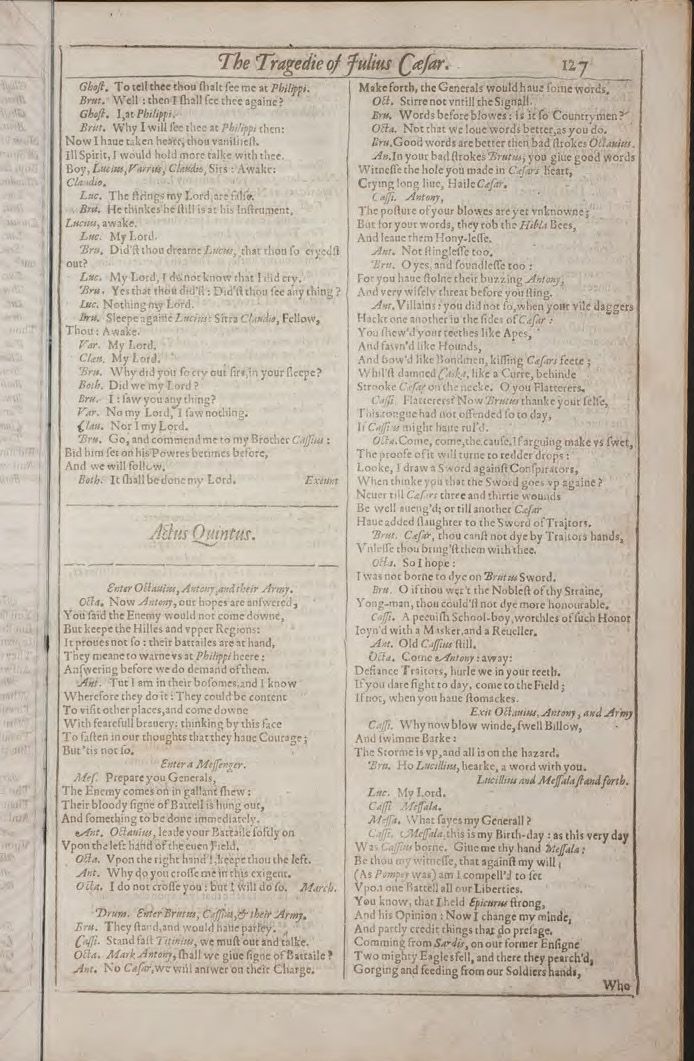 The Tragedie of Julius Cæſar. 127
Ghoſt. To tell thee thou ſhalt ſee me at Philippi.
Brut. Well : then I ſhall ſee thee againe?
Ghoſt. I, at Philippi.
Brut. Why I will ſee thee at Philippi then:
Now I haue taken heart, thou vaniſheſt.
Ill Spirit, I would hold more talke with thee.
Boy, Lucius, Varrus, Claudio, Sirs : Awake:
Claudio.
Luc. The ſtrings my Lord, are falſe.
Bru. He thinkes he ſtill is at his Inſtrument,
Lucius, awake.
Luc. My Lord.
Bru. Did'ſt thou dreame Lucius, that thou ſo cryedſt
out?
Luc. My Lord, I do not know that I did cry.
Bru. Yes that thou did'ſt : Did'ſt thou ſee any thing?
Luc. Nothing my Lord.
Bru. Sleepe againe Lucius: Sirra Claudio, Fellow,
Thou : Awake.
Var. My Lord.
Clau. My Lord.
Bru. Why did you ſo cry out ſirs, in your ſleepe?
Both. Did we my Lord?
Bru. I : ſaw you any thing?
Var. No my Lord, I ſaw nothing.
Clau. Nor I my Lord.
Bru. Go, and commend me to my Brother Caſſius :
Bid him ſet on his Powres betimes before,
And we will follow.
Both. It ſhall be done my Lord. Exeunt
Actus Quintus.
Enter Octauius, Antony, and their Army.
Octa. Now Antony, our hopes are anſwered,
You ſaid the Enemy would not come downe,
But keepe the Hilles and vpper Regions:
It proues not ſo : their battailes are at hand,
They meane to warne vs at Philippi heere :
Anſwering before we do demand of them.
Ant. Tut I am in their boſomes, and I know
Wherefore they do it : They could be content
To viſit other places, and come downe
With fearefull brauery: thinking by this face
To faſten in our thoughts that they haue Courage;
But 'tis not ſo.
Enter a Meſſenger.
Meſ. Prepare you Generals,
The Enemy comes on in gallant ſhew :
Their bloody ſigne of Battell is hung out,
And ſomething to be done immediately.
Ant. Octauius, leade your Battaile ſoftly on
Vpon the left hand of the euen Field.
Octa. Vpon the right hand I, keepe thou the left.
Ant. Why do you croſſe me in this exigent.
Octa. I do not croſſe you : but I will do ſo. March.
Drum. Enter Brutus, Caſſius, & their Army.
Bru. They ſtand, and would haue parley.
Caſſi. Stand faſt Titinius, we muſt out and talke.
Octa. Mark Antony, ſhall we giue ſigne of Battaile?
Ant. No Cæſar, we will anſwer on their Charge.
Make forth, the Generals would haue ſome words.
Oct. Stirre not vntill the Signall.
Bru. Words before blowes : is it ſo Countrymen?
Octa. Not that we loue words better, as you do.
Bru. Good words are better then bad ſtrokes Octauius.
An. In your bad ſtrokes Brutus, you giue good words
Witneſſe the hole you made in Cæſars heart,
Crying long liue, Haile Cæſar.
Caſſi. Antony,
The poſture of your blowes are yet vnknowne;
But for your words, they rob the Hibla Bees,
And leaue them Hony-leſſe.
Ant. Not ſtingleſſe too.
Bru. O yes, and ſoundleſſe too :
For you haue ſtolne their buzzing Antony,
And very wiſely threat before you ſting.
Ant. Villains : you did not ſo, when your vile daggers
Hackt one another in the ſides of Cæſar :
You ſhew'd your teethes like Apes,
And fawn'd like Hounds,
And bow'd like Bondmen, kiſſing Cæſars feete ;
Whil'ſt damned Caska, like a Curre, behinde
Strooke Cæſar on the necke. O you Flatterers.
Caſſi. Flatterers? Now Brutus thanke your ſelfe,
This tongue had not offended ſo to day,
If Caſſius might haue rul'd.
Octa. Come, come, the cauſe. If arguing make vs ſwet,
The proofe of it will turne to redder drops :
Looke, I draw a Sword againſt Conſpirators,
When thinke you that the Sword goes vp againe?
Neuer till Cæſars three and thirtie wounds
Be well aueng'd; or till another Cæſar
Haue added ſlaughter to the Sword of Traitors.
Brut. Cæſar, thou canſt not dye by Traitors hands,
Vnleſſe thou bring'ſt them with thee.
Octa. So I hope :
I was not borne to dye on Brutus Sword.
Bru. O if thou wer't the Nobleſt of thy Straine,
Yong-man, thou could'ſt not dye more honourable.
Caſſi. A peeuiſh School-boy, worthles of ſuch Honor
Ioyn'd with a Masker, and a Reueller.
Ant. Old Caſſius ſtill.
Octa. Come Antony : away:
Defiance Traitors, hurle we in your teeth.
If you dare fight to day, come to the Field ;
If not, when you haue ſtomackes.
Exit Octauius, Antony, and Army
Caſſi. Why now blow winde, ſwell Billow,
And ſwimme Barke :
The Storme is vp, and all is on the hazard.
Bru. Ho Lucillius, hearke, a word with you.
Lucillius and Meſſala ſtand forth.
Luc. My Lord.
Caſſi. Meſſala.
Meſſa. What ſayes my Generall?
Caſſi. Meſſala, this is my Birth-day : as this very day
Was Caſſius borne. Giue me thy hand Meſſala :
Be thou my witneſſe, that againſt my will,
(As Pompey was) am I compell'd to ſet
Vpon one Battell all our Liberties.
You know, that I held Epicurus ſtrong,
And his Opinion : Now I change my minde,
And partly credit things that do preſage.
Comming from Sardis, on our former Enſigne
Two mighty Eagles fell, and there they pearch'd,
Gorging and feeding from our Soldiers hands,
Who